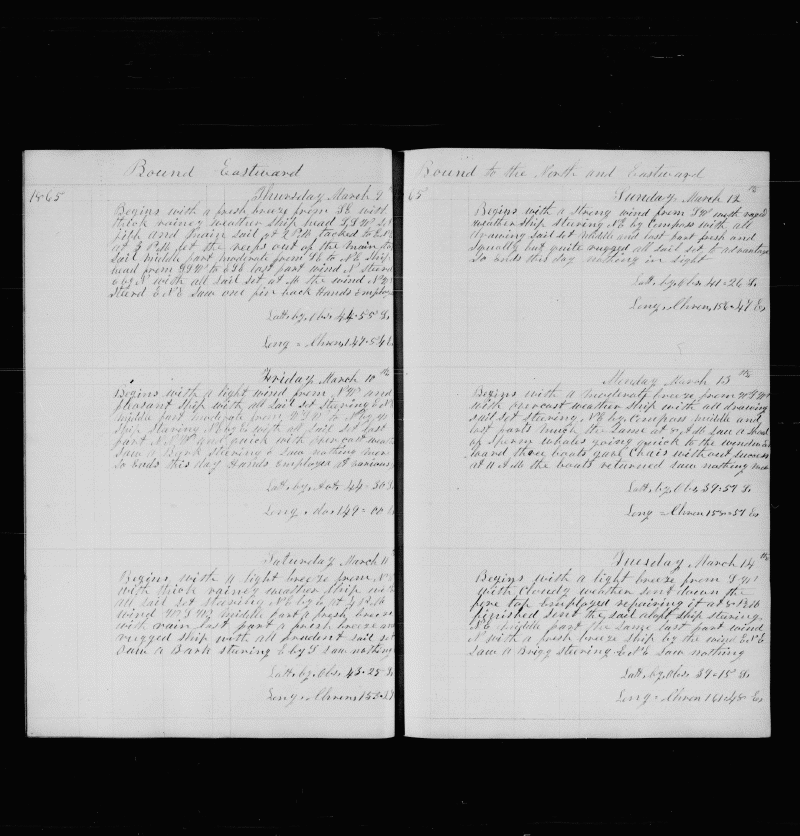 Bound Eastward
1865
Thursday March 9
Begins with a fresh breeze from SE with
thick rainey weather ship head
gibb and Spain sail at 2 PM tacked to ENE
at 3 PM let the reefs out of the main top
sail middle part moderate from to NE Ship
head from to last part wind N Steerd
E by N with all sail set at M the wind
Steerd ENE Saw one fin back Hands Employ
Latt. by. Obs. 44-55 S.
Long = Chron. 147-54 E
Friday March 10th
Begins with a light wind from NW and
pleasant Ship with all sail set Steering
middle part moderate from to
Ship Steering with all sail set last
part and quick with overcast weat
Saw a Bark Steering E Saw nothing more
So Ends this day Hands Employed at various
Latt. by. Acct. 44-30 S.
Long. do. 149-00 E
Saturday March 11th
Begins with a light breeze from
with thick rainey weather Ship with
all sail set Steering at
wind middle part a fresh breeze
with rain last part a fresh breeze and
rugged Ship with all prudent sail set
Saw a Bark Steering E by S Saw nothing
Latt. by. Obs. 43-25 S.
Long. Chron. 152
Bound to the North and Eastward
65
Sunday March 12th
Begins with a Strong wind from SW with
weather Ship Steering NE by Compass with all
drawing sail set Middle and last part fresh and
Squally but quite rugged all sail set to advantage
So Ends this day nothing in sight
Latt. by. Obs. 41-26 S.
Long. Chron. 156-47 E
Monday March 13th
Begins with a moderate breeze from
with overcast weather Ship with all drawing
sail set Steering NE by Compass middle and
last parts much the Same at AM Saw a
of Sperm whales going quick to the windward
three boats gave Chais without success
at 11 AM the boats returned Saw nothing more
Latt. by. Obs. 39-57 S.
Long = Chron 158-57 E
Tuesday March 14th
Begins with a light breeze from SW
with Cloudy weather Sent down the
fore top Employed repairing it at PM
finished Sent the sail aloft Ship Steering
NE middle part the Same last part wind
N with a fresh breeze Ship by the wind ENE
Saw a Brigg Steering ENE Saw nothing
Latt. by. Obs. 39-15 S.
Long = Chron 161-48 E